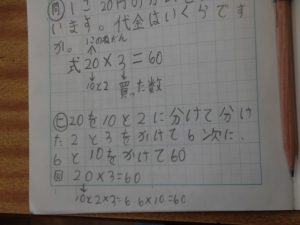 問 1こ20円の
います。代金はいくらです
か。 1このねだん
式 20×3=60
10と2 買った数
ヒ 20を10と2に分けて分け
た2と3をかけて6次に
6と10をかけて60
図 20×3=60
10と2×3=6 6×10=60